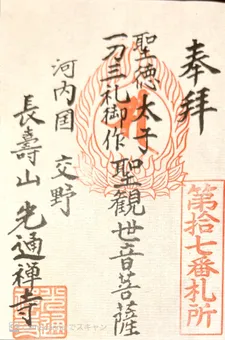 奉拝
第拾七番札所
聖徳太子
一刀三礼御作聖観世音菩薩
河内国 交野
長壽山 光通禅寺
でスキャン